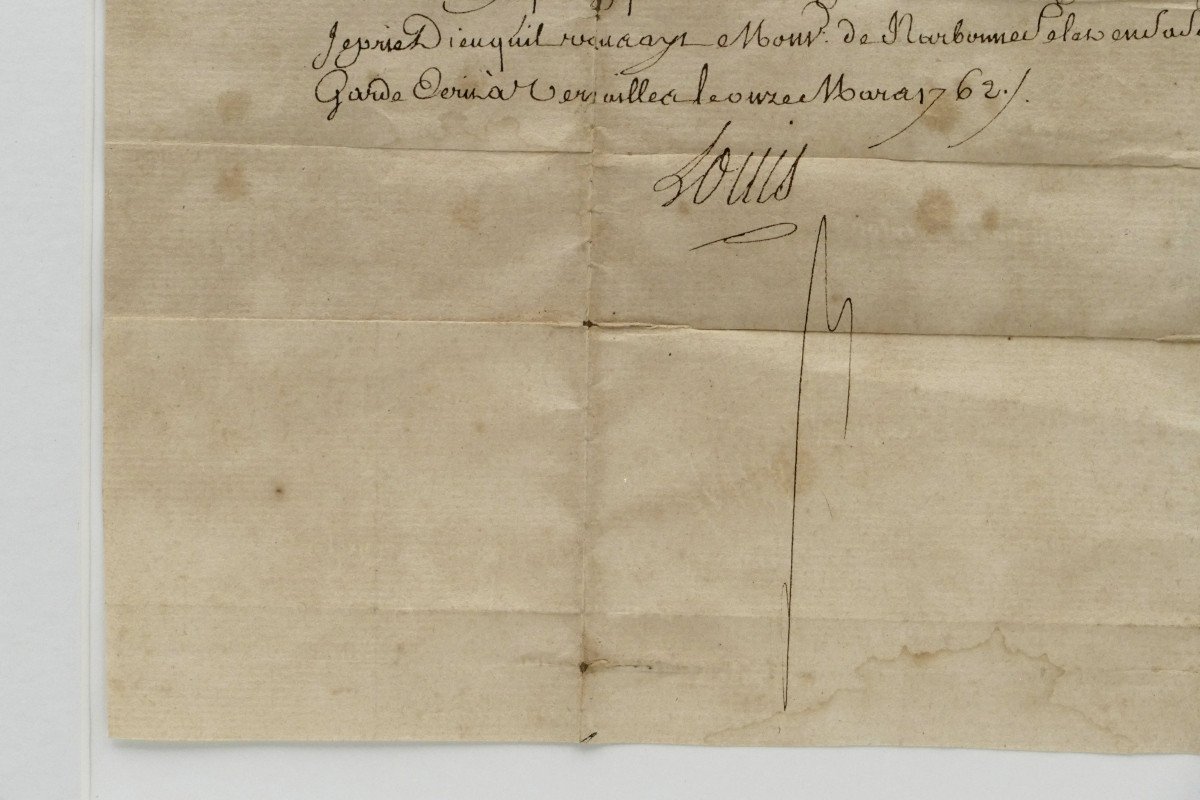 Je prie Dieu quil vous ayt Monr. de Narbonne Pelet en Sa Ste
Garde Ecrit à Versailles le onze Mars 1762 ./.
Louis